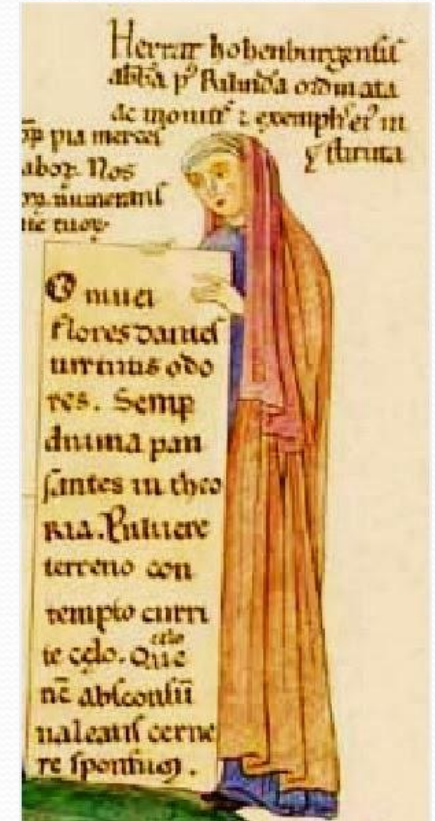 Herrat hohenburgensis
abba p' Rilinda ordinata
ac monitis & exemplis ei' in
stituta
pia merces
labor. Nos
numerans
O nivei
flores dantes
virtutis odo
res. Semp
divina pau
santes in theo
ria. Pulvere
terreno con
tempto curri
te celo. Que
celo
nc absconsū
valeatis cerne
re sponsum.